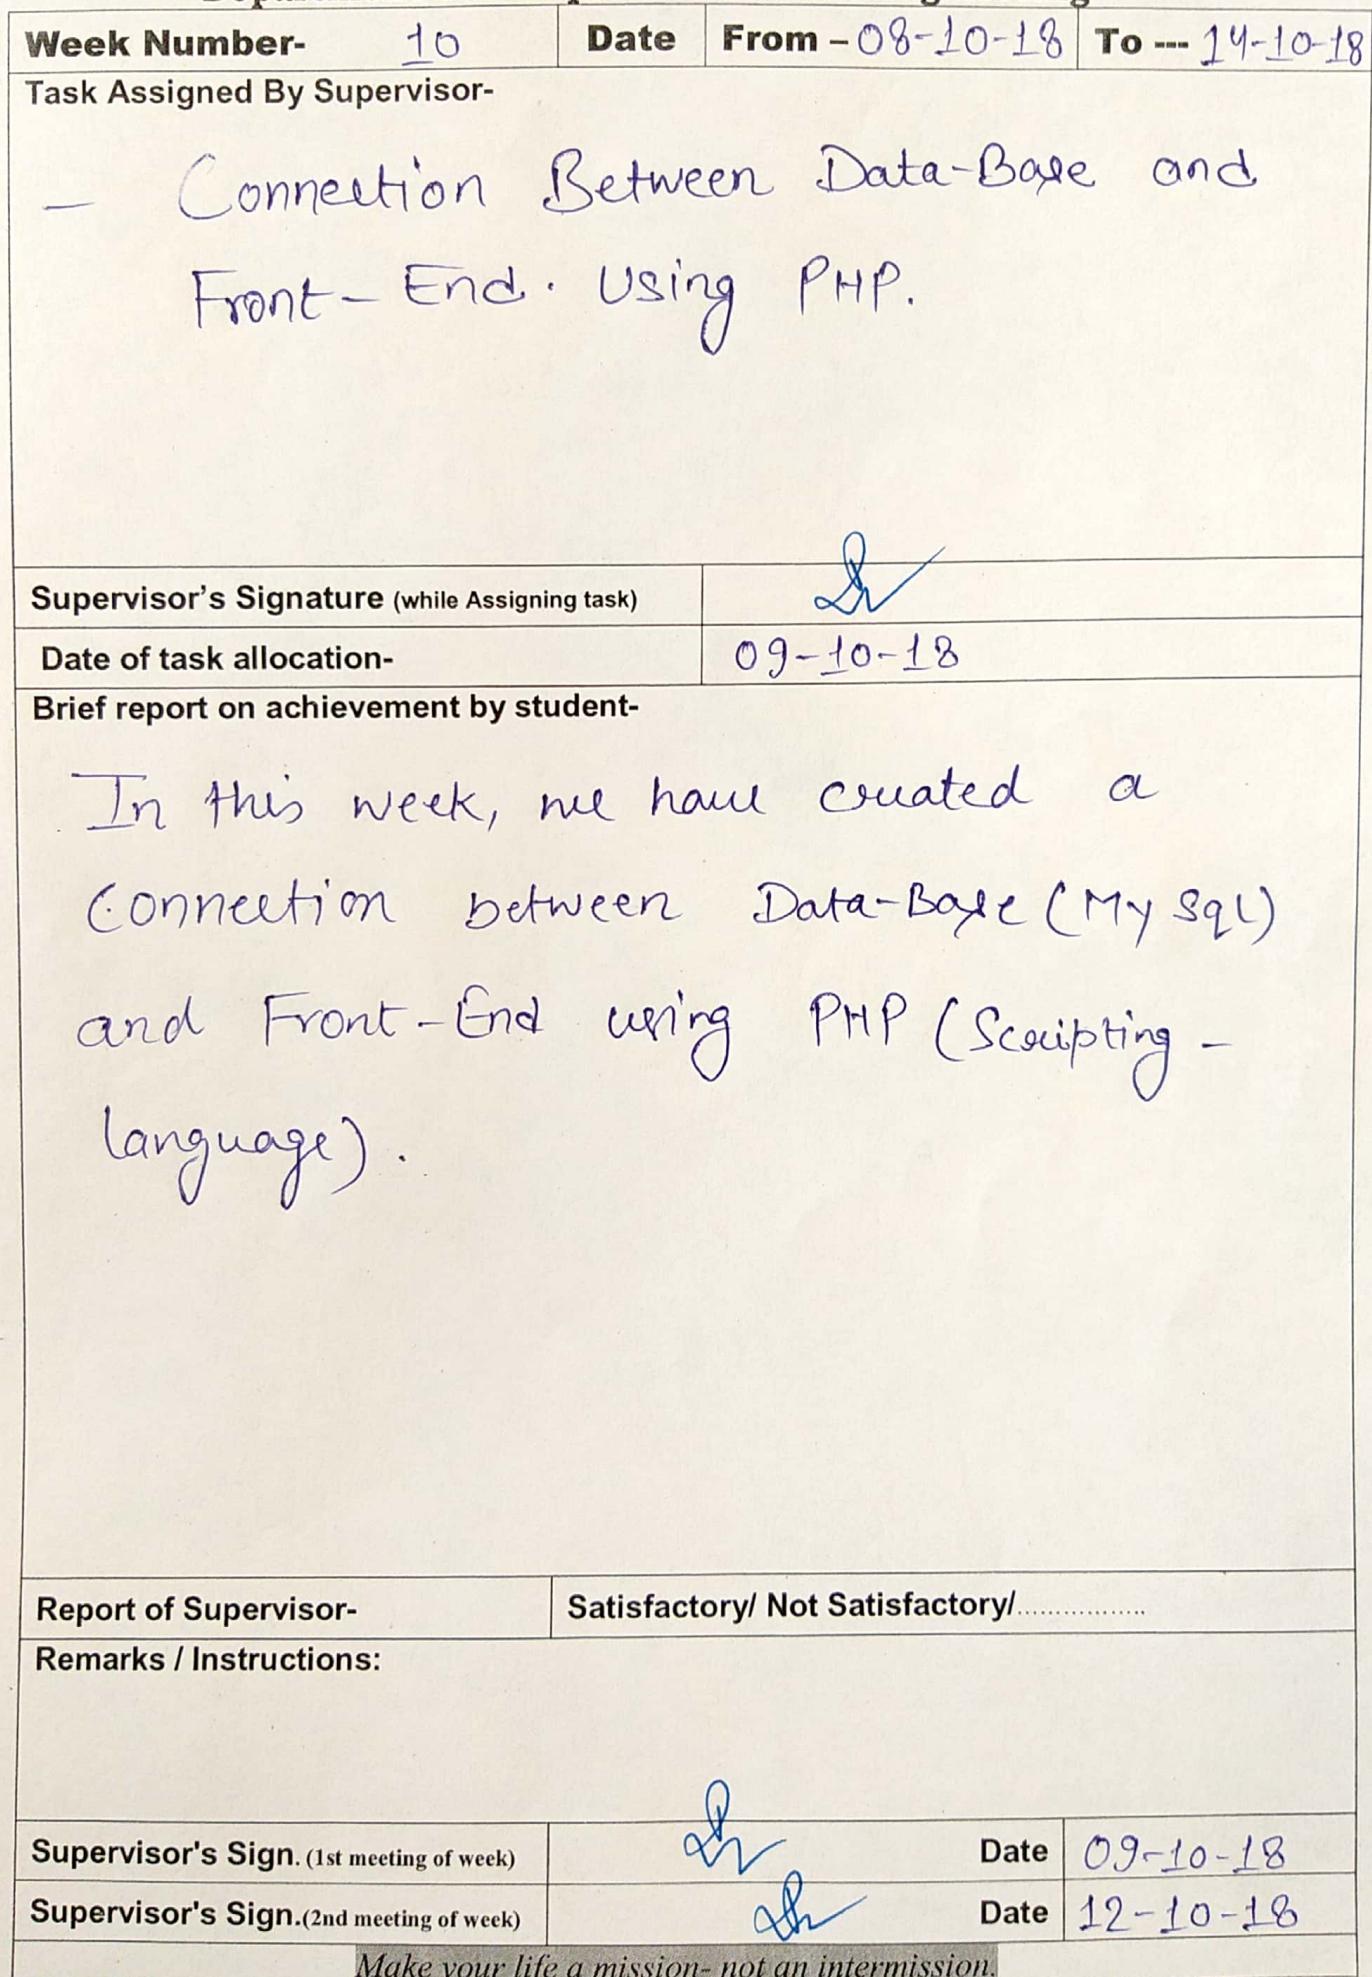 Week Number- 10 Date From - 08-10-18 To --- 14-10-18
Task Assigned By Supervisor-
- Connection Between Data-Base and
Front-End. Using PHP.
Supervisor's Signature (while Assigning task)
Date of task allocation- 09-10-18
Brief report on achievement by student-
In this week, we have created a
Connection between Data-Base (My Sql)
and Front-End using PHP (Scripting -
language).
Report of Supervisor- Satisfactory/ Not Satisfactory/.................
Remarks / Instructions:
Supervisor's Sign. (1st meeting of week) Date 09-10-18
Supervisor's Sign.(2nd meeting of week) Date 12-10-18
Make your life a mission- not an intermission.